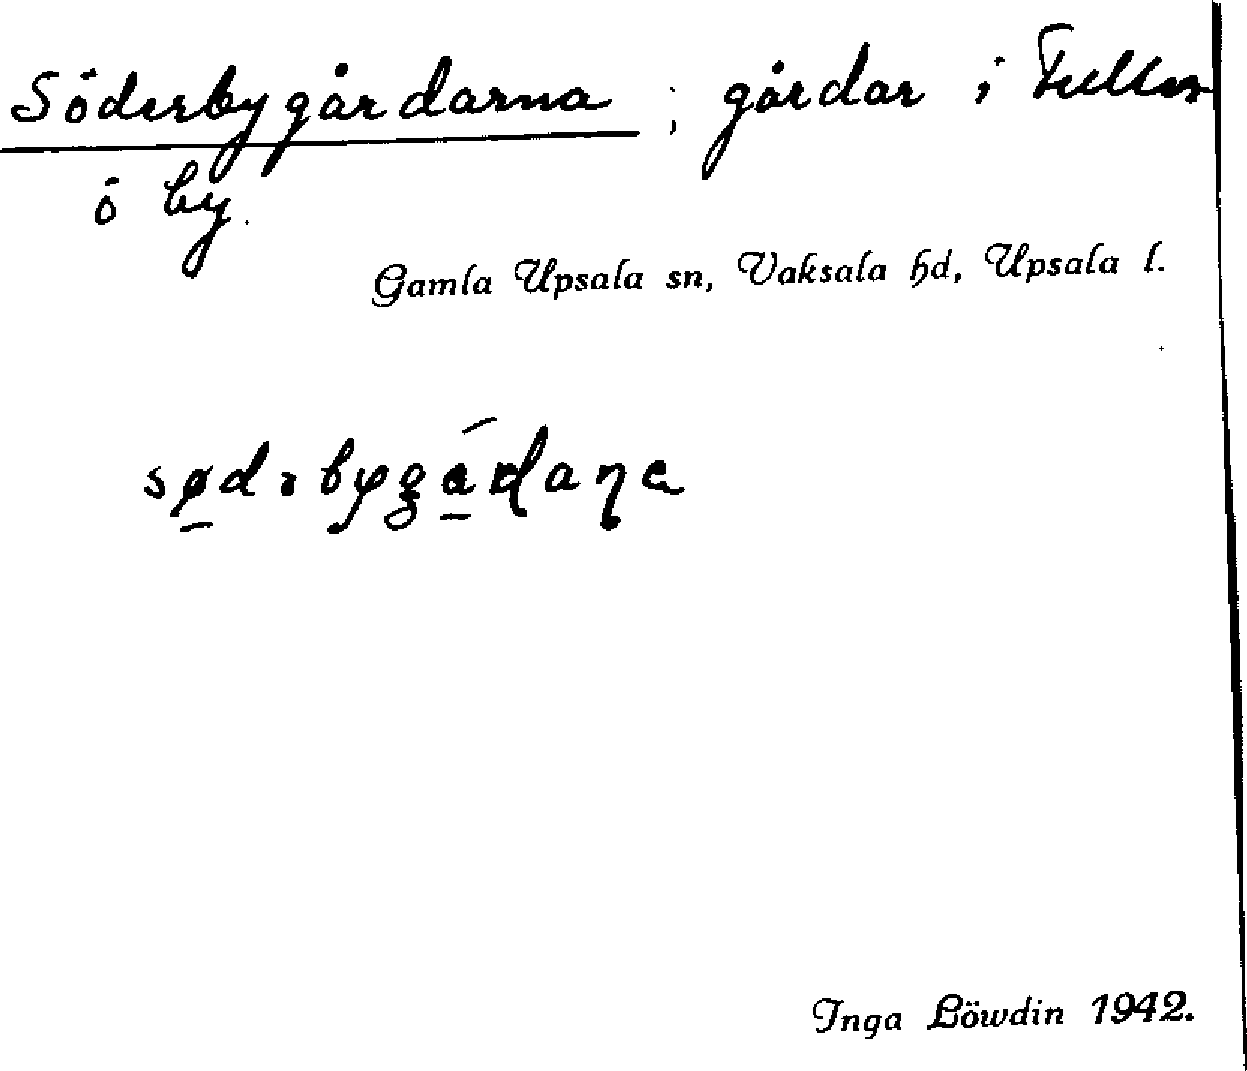 Söderbygårdarna ; gårdar i Fuller
ö by.
Gamla Upsala sn, Vaksala hd, Upsala l.
Inga Löwdin 1942.